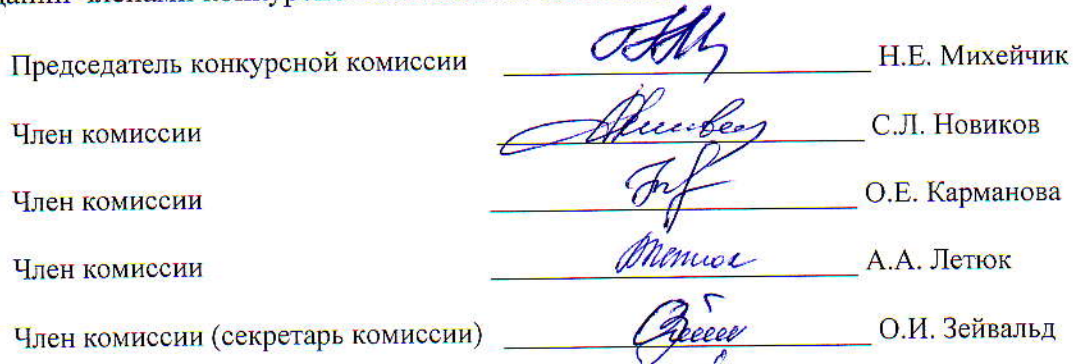 членами
Председатель конкурсной комиссии Н.Е. Михейчик
Член комиссии С.Л. Новиков
Член комиссии О.Е. Карманова
Член комиссии А.А. Летюк
Член комиссии (секретарь комиссии) О.И. Зейвальд